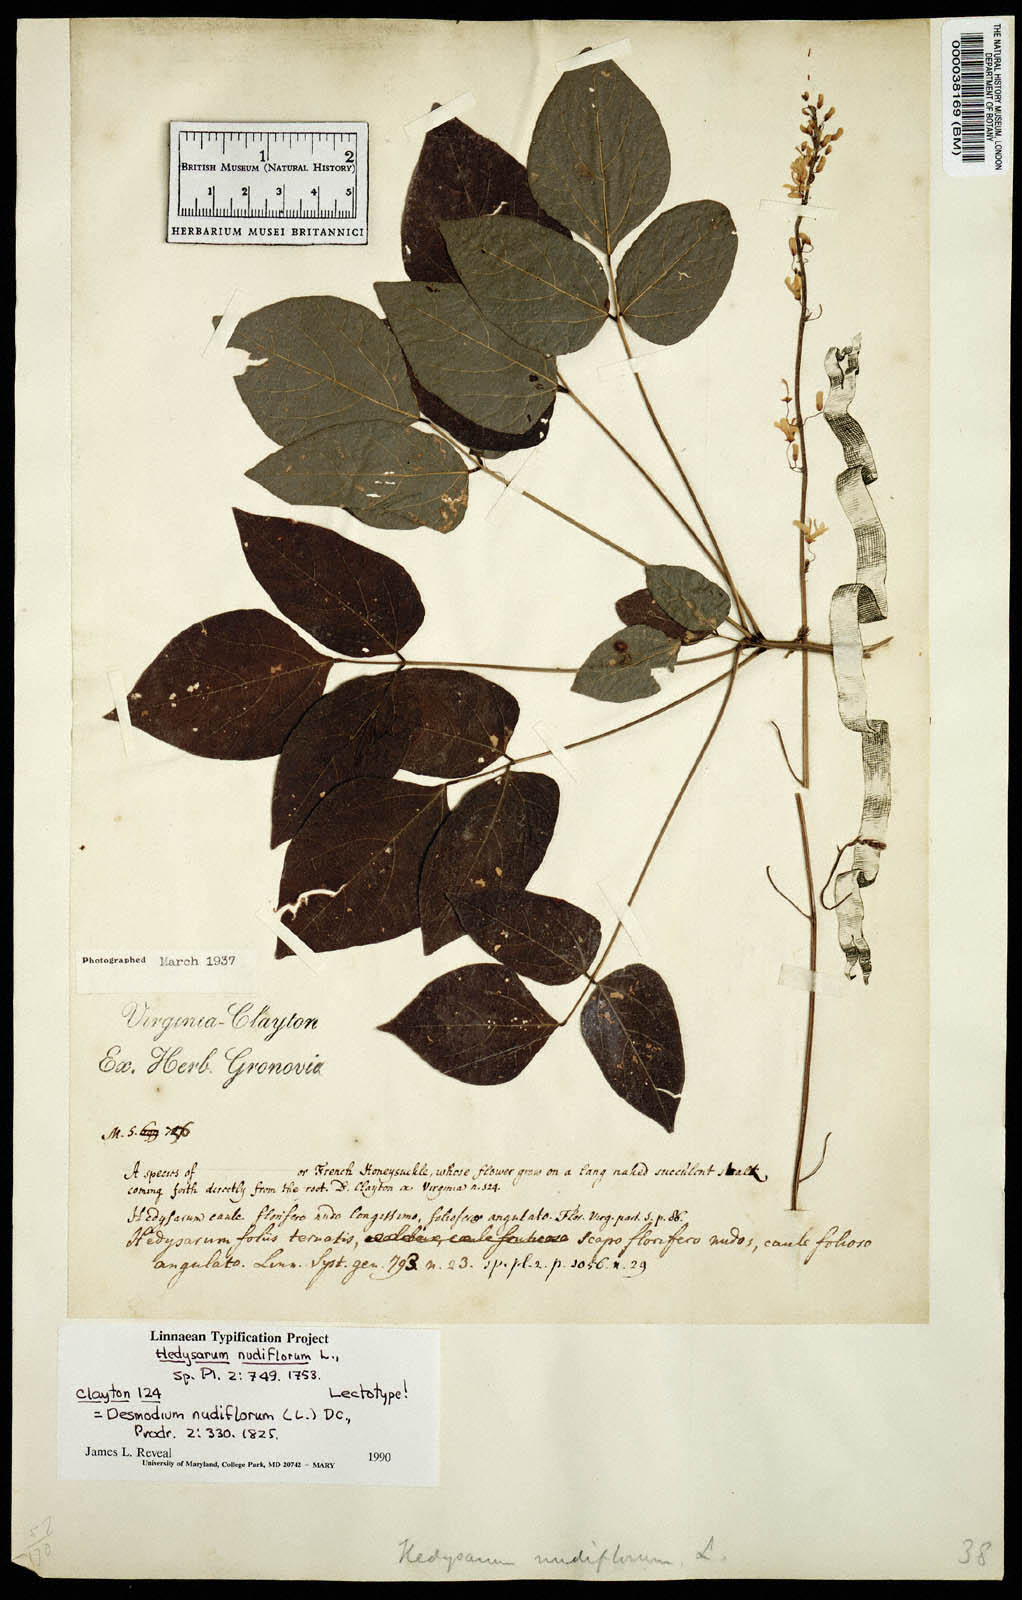 THE NATURAL HISTORY MUSEUM, LONDON
DEPARTMENT OF BOTANY
000038169 (BM)
1 2
British Museum (Natural History)
1 2 3 4 5
HERBARIUM MUSEI BRITANNICI
Photographed March 1937
Virginia-Clayton
Ex. Herb. Gronovii
M. 5. 726
A species of or French Honeysuckle, whose flower grow on a lang naked succulent stalk
coming forth directly from the root. D. Clayton ex Virginia n. 124.
Hedysarum caule florifero nudo longissimo, folioso angulato. Flor. Virg. part. 1. p. 86.
Hedysarum foliis ternatis, scapo florifero nudos, caule folioso
angulato. Linn. Syst. gen. 793. n. 23. sp. pl. 2. p. 1056. n. 29
Linnaean Typification Project
Hedysarum nudiflorum L.,
Sp. Pl. 2: 749. 1753.
Clayton 124 Lectotype!
= Desmodium nudiflorum (L.) DC.,
Prodr. 2: 330. 1825.
James L. Reveal 1990
University of Maryland, College Park, MD 20742 – MARY
Hedysarum nudiflorum, L.
38